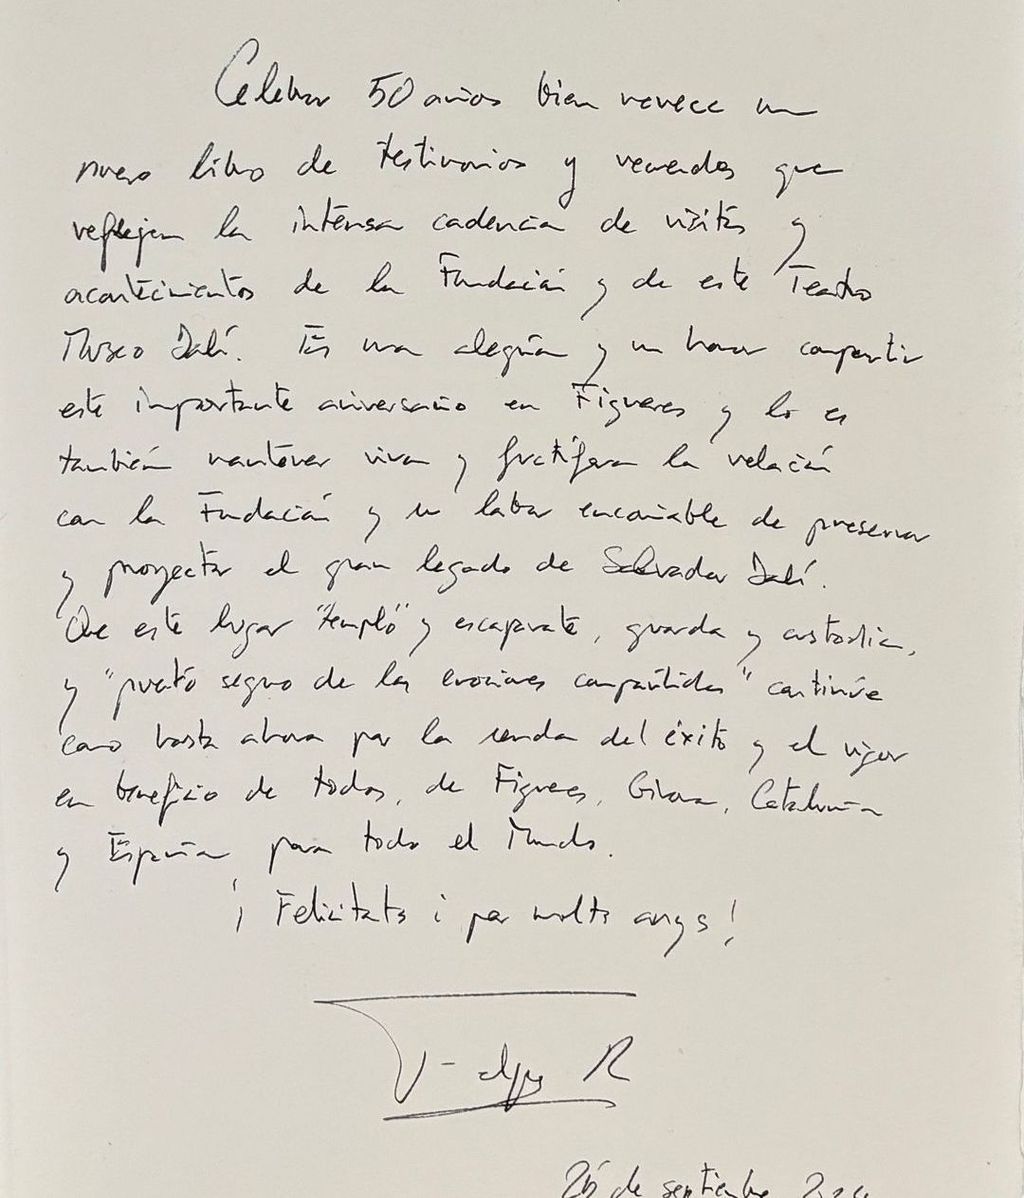 Celebrar 50 años bien merece un
nuevo libro de testimonios y recuerdos que
reflejen la intensa cadencia de visitas y
acontecimientos de la Fundación y de este Teatro
Museo Dalí. Es una alegría y un honor compartir
este importante aniversario en Figueres y lo es
también mantener viva y fructífera la relación
con la Fundación y su labor encomiable de preservar
y proyectar el gran legado de Salvador Dalí.
Que este lugar "templo" y escaparate, guarda y custodia,
y "puerto seguro de las emociones compartidas" continúe
como hasta ahora por la senda del éxito y el vigor
en beneficio de todos, de Figueres, Girona, Cataluña
y España, para todo el Mundo.
¡Felicitats i per molts anys!
Felipe R
de septiembre